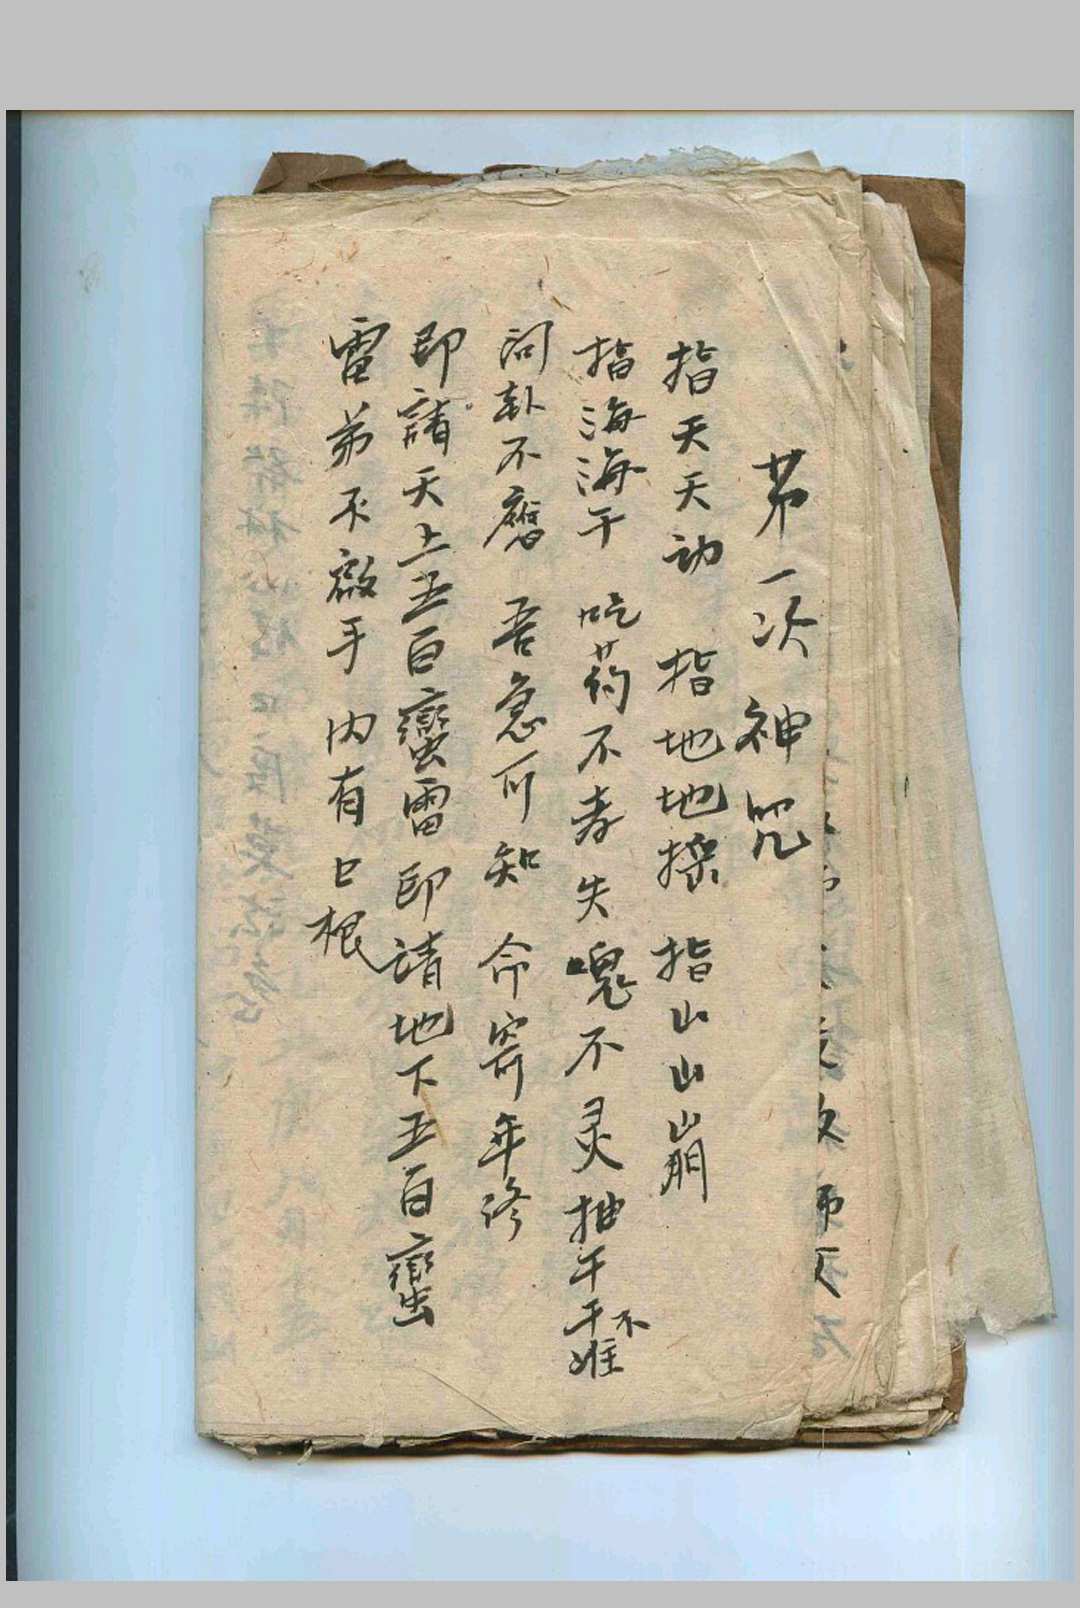 苐一次神咒
指天天动 指地地摇 指山山崩
指海海干 吃药不孝失魂不灵抽干干不准
问卦不應 吾急可知 命寄年终
即請天上五百蠻雷即请地下五百蠻
雷弟不啟手内有七根